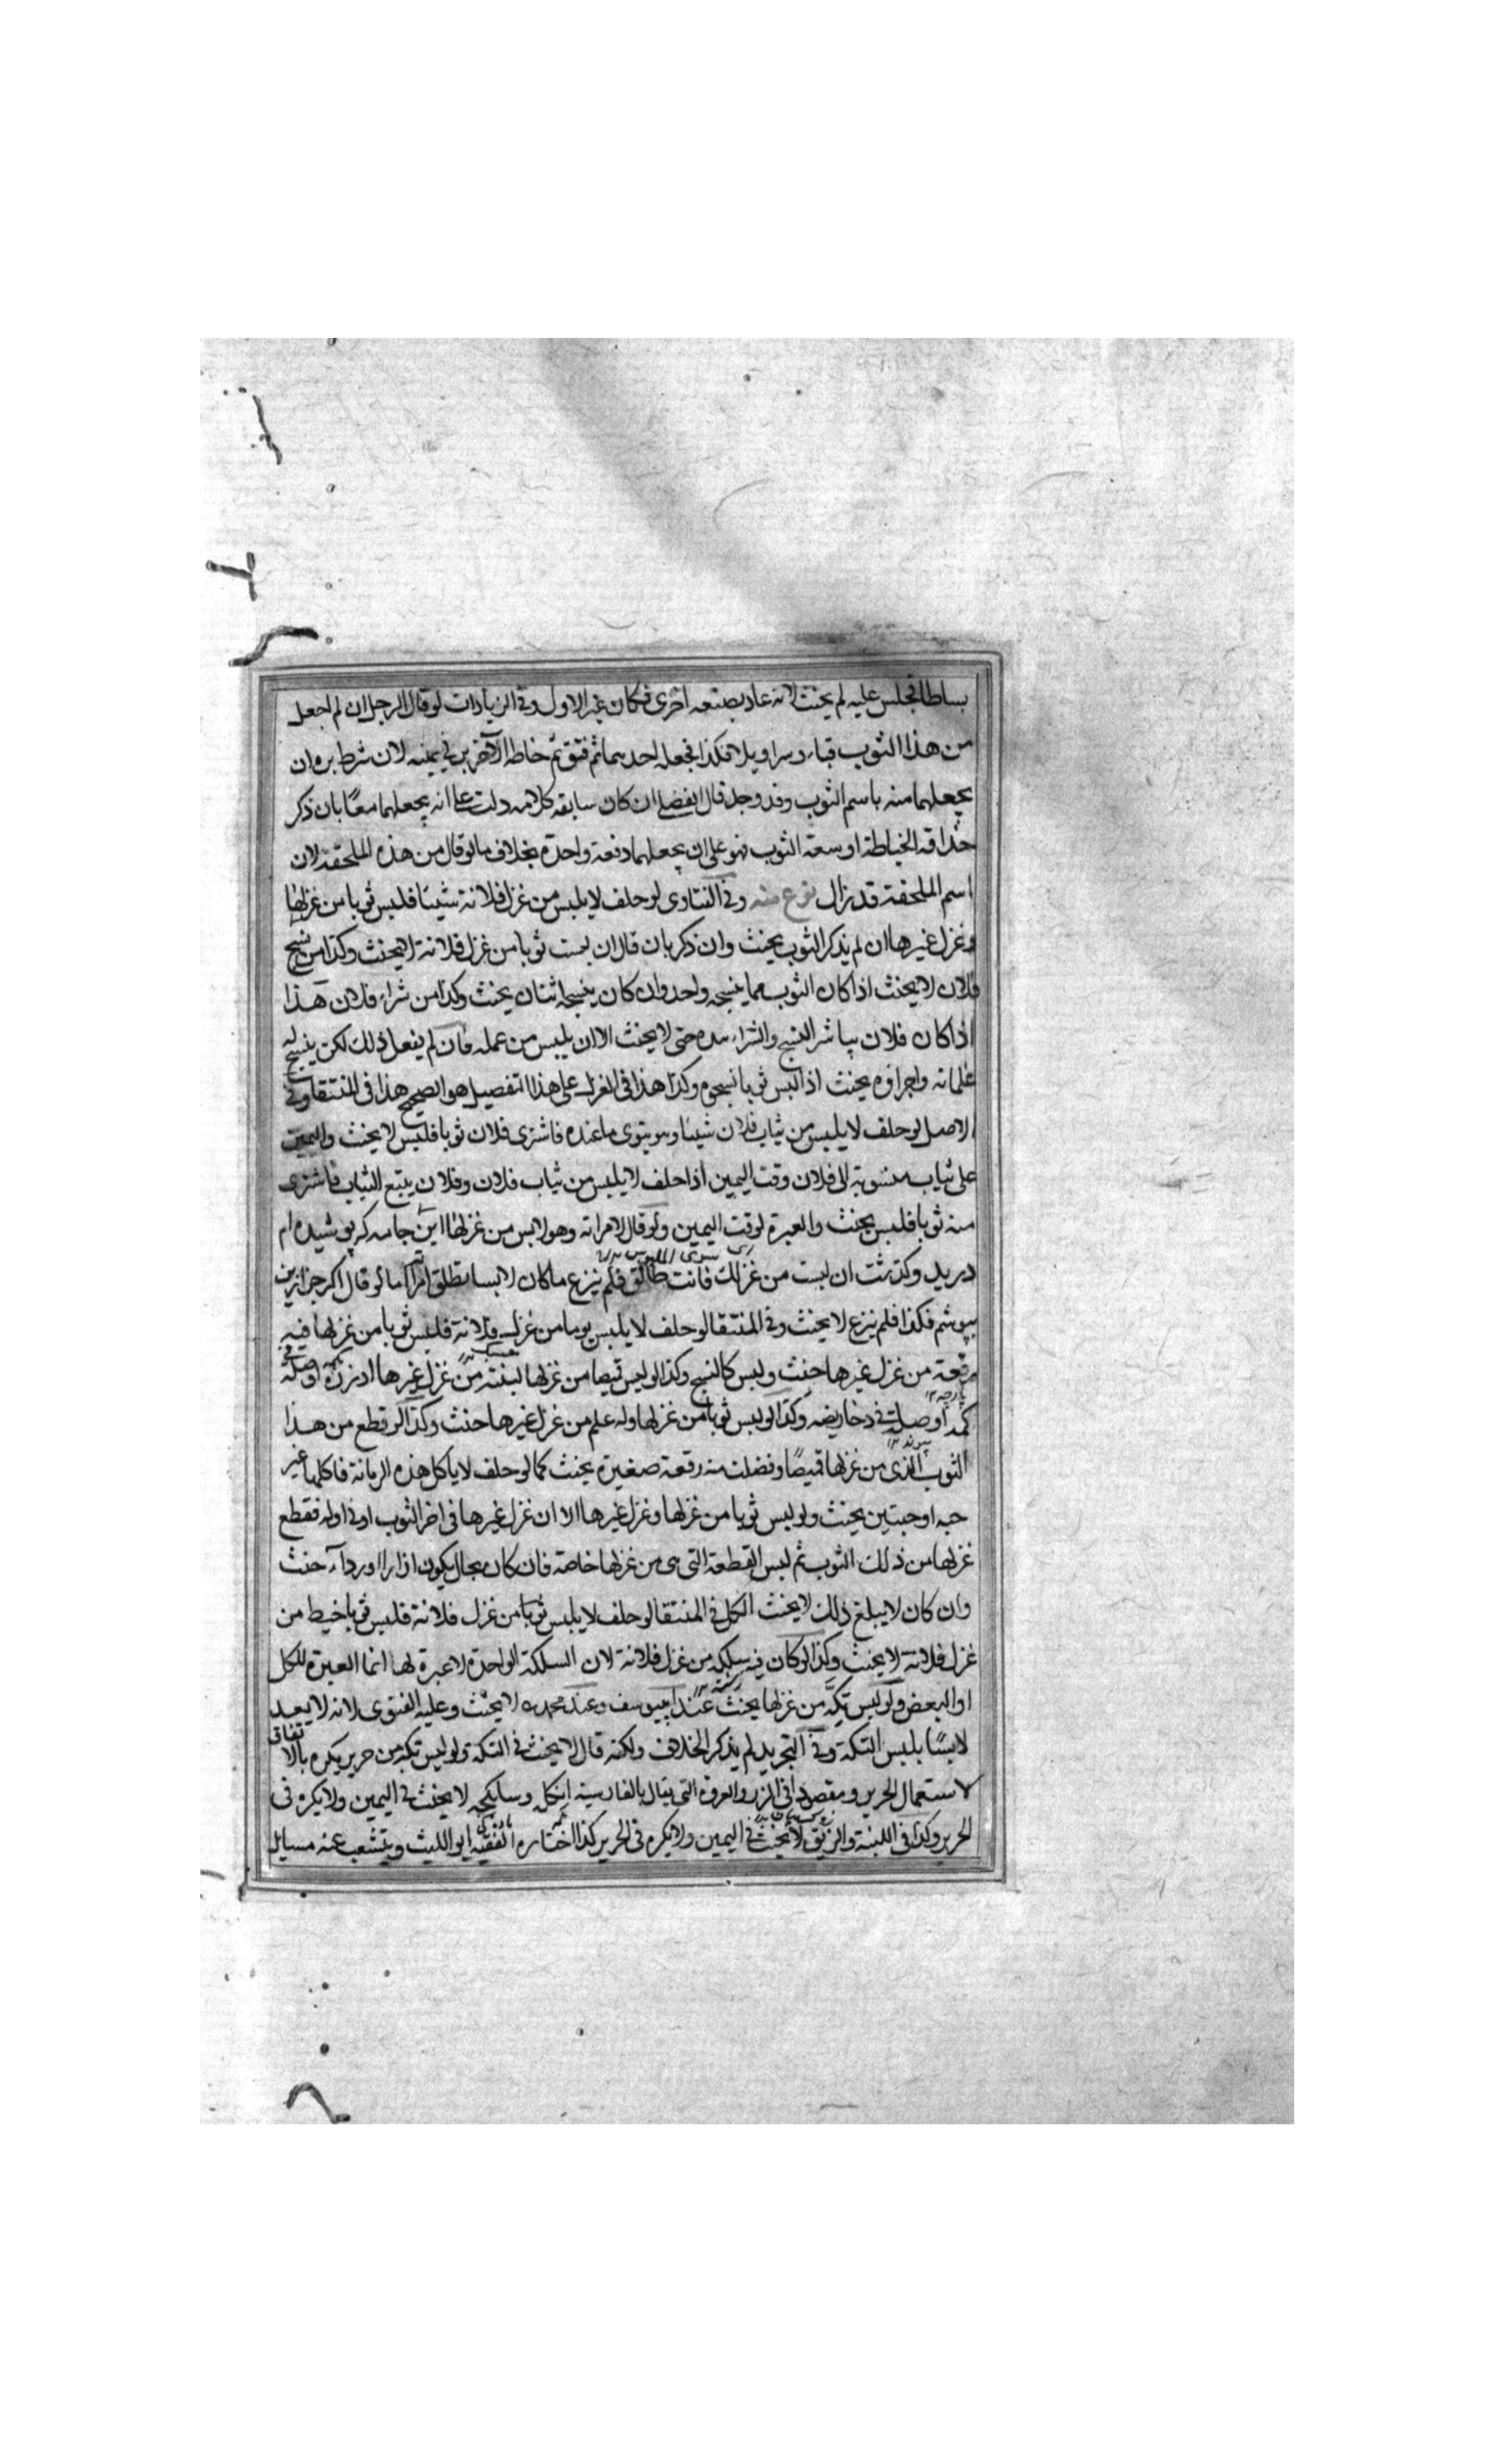 بساطا فجلس عليه لم يحنث لانه عاد بصنعه اخرى فكان غير الاول وفى الزيادات لو قال الرجل ان لم اجعل
من هذا الثوب قباء وسراويلا فكذا فجعله احدهما ثم فتق ثم خاطه الآخر بر فى يمينه لان شرط بره ان
يجعلهما منه باسم الثوب وقد وجد قال الفضلى ان كان سابقه كلامه دلت على انه يجعلهما معًا بان ذكر
حذاقه الخياطة او سعة الثوب فهو على ان يجعلهما دفعة واحدة بخلاف ما لو قال من هذه الملحفة لان
اسم الملحفة قد زال نوع منه وفى الفتاوى لو حلف لا يلبس من غزل فلانة شيئا فلبس ثوبا من غزلها
وغزل غيرها ان لم يذكر الثوب يحنث وان ذكر بان قال ان لبست ثوبا من غزل فلانة لا يحنث وكذا من نسج
فلان لا يحنث اذا كان الثوب مما ينسجه واحد وان كان ينسجه اثنان يحنث وكذا من شراء فلان هذا
اذا كان فلان يباشر النسج والشراء بيده حتى لا يحنث الا ان يلبس من عمله فان لم يفعل ذلك لكن ينسج له
غلمانه واجراؤه يحنث اذا لبس ثوبا نسجوه وكذا هذا فى الغزل على هذا التفصيل هو الصحيح هذا فى المنتقا وفى
الاصل لو حلف لا يلبس من ثياب فلان شيئا وهو ينوى ما عنده فاشترى فلان ثوبا فلبس لا يحنث واليمين
على ثياب منسوبة الى فلان وقت اليمين اذا حلف لا يلبس من ثياب فلان وفلان يبيع الثياب فاشترى
منه ثوبا فلبس يحنث والعبرة لوقت اليمين ولو قال لامراته وهو لابس من غزلها اين جامه كه پوشيده ام
وكذ تست ان لبست من غزلك فانت طالق فلم ينزع ما كان لابسا تطلق اما لو قال اكر جز ازين
بپوشم فكذا فلم ينزع لا يحنث وفى المنتقا لو حلف لا يلبس ثوبا من غزل فلانة فلبس ثوبا من غزلها فيه
رقعة من غزل غيرها حنث وليس كالنسج وكذا لو لبس قميصا من غزلها لبنته من غزل غيرها او زره او صلة فى
كمه او صلت فى دخاريضه وكذا لو لبس ثوبا من غزلها وله علم من غزل غيرها حنث وكذا لو قطع من هذا
الثوب الذى من غزلها قميصًا وفضلت منه رقعة صغيرة يحنث كما لو حلف لا ياكل هذه الرمانة فاكلها غير
حبه او حبتين يحنث ولو لبس ثوبا من غزلها وغزل غيرها الا ان غزل غيرها فى اخر الثوب او فى اوله فقطع
غزلها من ذلك الثوب ثم لبس القطعة التى هى من غزلها خاصة فان كان بحال يكون ازارا او رداء حنث
وان كان لا يبلغ ذلك لا يحنث الكل فى المنتقا لو حلف لا يلبس ثوبا من غزل فلانة فلبس ثوبا خيط من
غزل فلانة لا يحنث وكذا لو كان فيه سلكه من غزل فلانة لان السلكة الواحدة لا عبرة لها انما العبرة للكل
او البعض ولو لبس تكة من غزلها يحنث عند ابى يوسف وعند محمد لا يحنث وعليه الفتوى لانه لا يعد
لابسًا بلبس التكة وفى التجريد لم يذكر الخلاف ولكنه قال لا يحنث فى التكة ولو لبس تكة من حرير يكره بالاتفاق
لاستعمال الحرير مقصودا فى الزر والعروة التى يقال بالفارسية لا يحنث فى اليمين ولا يكره فى
الحرير وكذا فى اللبنة والزيق لا يحنث فى اليمين ولا يكره فى الحرير كذا اختاره الفقيه ابو الليث ويتشعب عنه مسايل